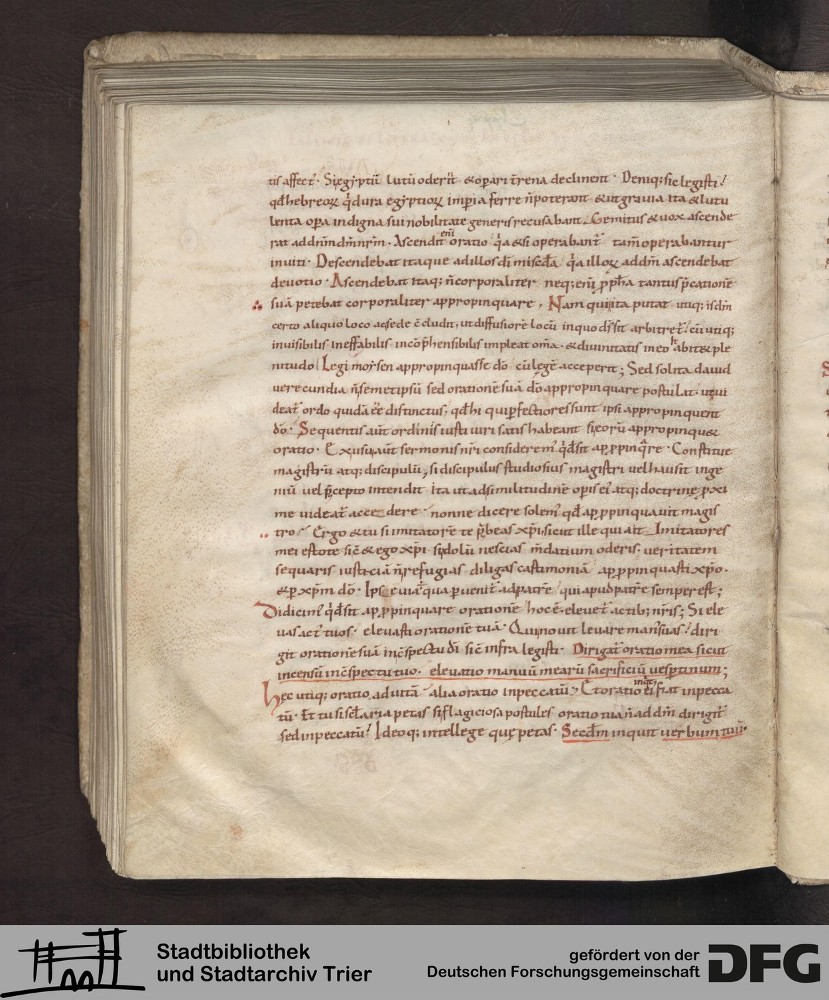 tis affect᷒. Si egyptū lutū oderit̄ & opari t̄rena declinent. Deniq; sic legisti/
qd̄ hebreoꝝ q̇ dura egyptioꝝ impia ferre n̄ poterant & ut gravia ita & lutu
lenta opa indigna sui nobilitate generis recusabant. Gemitus & vox ascende
rat ad dn̄m dm̄ nr̄m. Ascendit eni oratio q̇a & si operabant᷒ tam̄ operabantur
inviti. Descendebat itaque ad illos dī miscd̄a q̇a illoꝝ ad dm̄ ascendebat
devotio. Ascendebat itaq; n̄ corporaliter neq; enī ꝓph̄a tantus p̄cationē
suā petebat corporaliter appropinquare. Nam qui ita putat utiq; is dm̄
certo aliquo loco ac sede c̄cludit, ut diffusiorē locū in quo d̄s sit arbitret᷒. cū utiq;
invisibilis ineffabilis incōp̄hensibilis impleat om̄a. & divinitatis in eo habit& ple
nitudo/ Legi moysen appropinquasse dō cū legē acceperit; Sed solita david
verecundia n̄ semetipsū sed orationē suā dō appropinquare postulat. ut vi
deat᷒ ordo quidā eē distinctus, qd̄ hi qui pfectiores sunt ipsi appropinquent
dō. Sequentis aūt ordinis iusti viri satis habeant si eorū appropinqu&
oratio. Ex usu aūt sermonis nr̄i considerem᷒ q̇d sit apꝓpinq̄re. Constitue
magistrū atq; discipulū, si discipulus studiosius magistri vel hausit inge
niū vel p̄cepto intendit ita ut ad similitudinē opis ei᷒ atq; doctrinę ꝓxi
me videat᷒ accedere nonne dicere solem᷒ qd̄ apꝓpinquavit magis
tro/ Ergo & tu si imitatorē te p̄beas xp̄i sicut ille qui ait Imitatores
mei estote sic̄ & ego xp̄i. si dolū nescias m̄datium oderis. veritatem
sequaris iusticiā n̄ refugias diligas castimoniā apꝓpinquasti xp̄o.
& p xp̄m dō. Ipse ē via q̇a pvenit᷒ ad patrē qui apud patrē semper est;
Didicim᷒ q̇d sit apꝓpinquare orationē hoc ē. elevet᷒ actib; nr̄is; Si ele
vas act᷒ tuos. elevasti orationē tuā. Qui novit levare man᷒ suas/ diri
git orationē suā in c̄spectu dī sic̄ infra legisti. Dirigat᷒ oratio mea sicut
incensū in c̄spectu tuo. elevatio manuū mearū sacrificiū vesptinum;
Hec utiq; oratio ad vitā alia oratio in peccatū; Et oratio inqt ei fiat in pecca
tū. Et tu si scel᷒aria petas si flagiciosa postules oratio tua n̄ ad dm̄ dirigit᷒
sed in peccatū/ Ideoq; intellege quę petas. Secd̄m inquit verbum tuū.
Stadtbibliothek
und Stadtarchiv Trier
gefördert von der
Deutschen Forschungsgemeinschaft
DFG